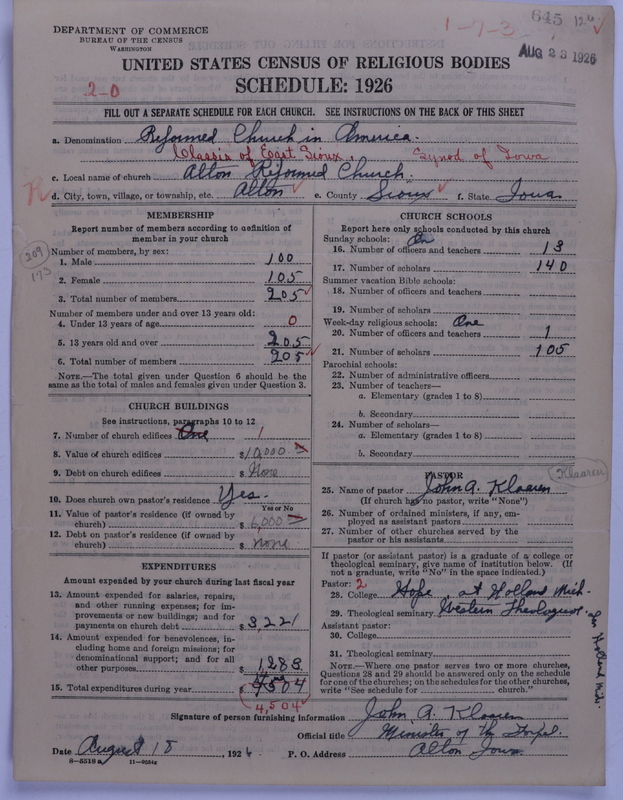 DEPARTMENT OF COMMERCE
BUREAU OF THE CENSUS
WASHINGTON
1-7-3
645
AUG 23 1926
UNITED STATES CENSUS OF RELIGIOUS BODIES
SCHEDULE: 1926
2-0
FILL OUT A SEPARATE SCHEDULE FOR EACH CHURCH. SEE INSTRUCTIONS ON THE BACK OF THIS SHEET
a. Denomination Reformed Church in America.
Classis of East Sioux. Synod of Iowa
c. Local name of church Alton Reformed Church.
d. City, town, village, or township, etc. Alton e. County Sioux f. State Iowa
MEMBERSHIP
Report number of members according to definition of
member in your church
209
173
Number of members, by sex:
1. Male 100
2. Female 105
3. Total number of members 205
Number of members under and over 13 years old:
4. Under 13 years of age 0
5. 13 years old and over 205
6. Total number of members 205
NOTE.—The total given under Question 6 should be
same as the total of males and females given under Question 3.
CHURCH BUILDINGS
See instructions, paragraphs 10 to 12
7. Number of church edifices One 1
8. Value of church edifices $10,000
9. Debt on church edifices $ None
10. Does church own pastor's residence Yes.
Yes or No
11. Value of pastor's residence (if owned by
church) $ 6,000
12. Debt on pastor's residence (if owned by
church) $ none
EXPENDITURES
Amount expended by your church during last fiscal year
13. Amount expended for salaries, repairs,
and other running expenses; for im-
provements or new buildings; and for
payments on church debt $3,221
14. Amount expended for benevolences, in-
cluding home and foreign missions; for
denominational support; and for all
other purposes $1283
15. Total expenditures during year $4504
4,504
CHURCH SCHOOLS
Report here only schools conducted by this church
Sunday schools: One
16. Number of officers and teachers 13
17. Number of scholars 140
Summer vacation Bible schools:
18. Number of officers and teachers
19. Number of scholars
Week-day religious schools: One
20. Number of officers and teachers 1
21. Number of scholars 105
Parochial schools:
22. Number of administrative officers
23. Number of teachers—
a. Elementary (grades 1 to 8)
b. Secondary
24. Number of scholars—
a. Elementary (grades 1 to 8)
b. Secondary
PASTOR
Klaaren
25. Name of pastor John A. Klaaren
(If church has no pastor, write "None")
26. Number of ordained ministers, if any, em-
ployed as assistant pastors
27. Number of other churches served by the
pastor or his assistants
If pastor (or assistant pastor) is a graduate of a college or
theological seminary, give name of institution below. (If
not a graduate, write "No" in the space indicated.)
Pastor: 2
28. College Hope, at Holland Mich.
29. Theological seminary Western Theological
in Holland Mich.
Assistant pastor:
30. College
31. Theological seminary
NOTE.—Where one pastor serves two or more churches,
Questions 28 and 29 should be answered only on the schedule
for one of the churches; on the schedules for the other churches,
write "See schedule for church."
Signature of person furnishing information John A. Klaaren
Official title Minister of the Gospel.
Date August 18, 1926 P. O. Address Alton Iowa.
8—5518a 11—9554a